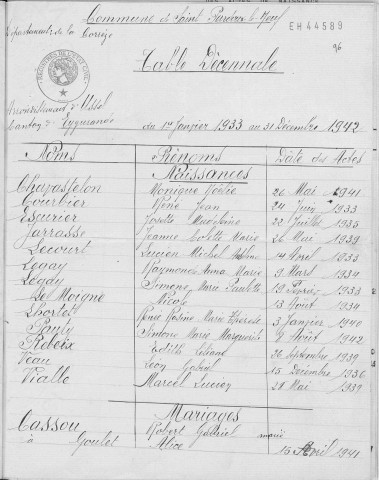 Commune de Saint Pardoux le Neuf
EH44589
Département de la Corrèze
96
Table Décennale
Arrondissement d'Ussel
Canton d'Eygurande du 1er Janvier 1933 au 31 Décembre 1942
Noms Prénoms Date des Actes
Naissances
Chapastelon Monique Noélie 20 Mai 1941
Courbier René Jean 24 Juin 1933
Esqurier Josette 22 Juillet 1935
Jarrasse Jeanne Colette Marie 26 Mai 1939
Lecourt Lucien Michel 14 Avril 1933
Legay Raymonde Anna Marie 9 Mars 1934
Legay Simone Marie Paulette 19 Février 1933
Le Moigne Nicole 13 Août 1934
Lhortet Marie Thérèse 3 Janvier 1940
Pauly Simone Marie Marguerite 8 Août 1942
Rebeix Edith 20 Septembre 1939
Veau Léon Gabriel 15 Décembre 1936
Vialle Marcel Lucien 29 Mai 1939
Mariages
Cassou Robert Gabriel marié
à Goulet Alice 15 Avril 1941